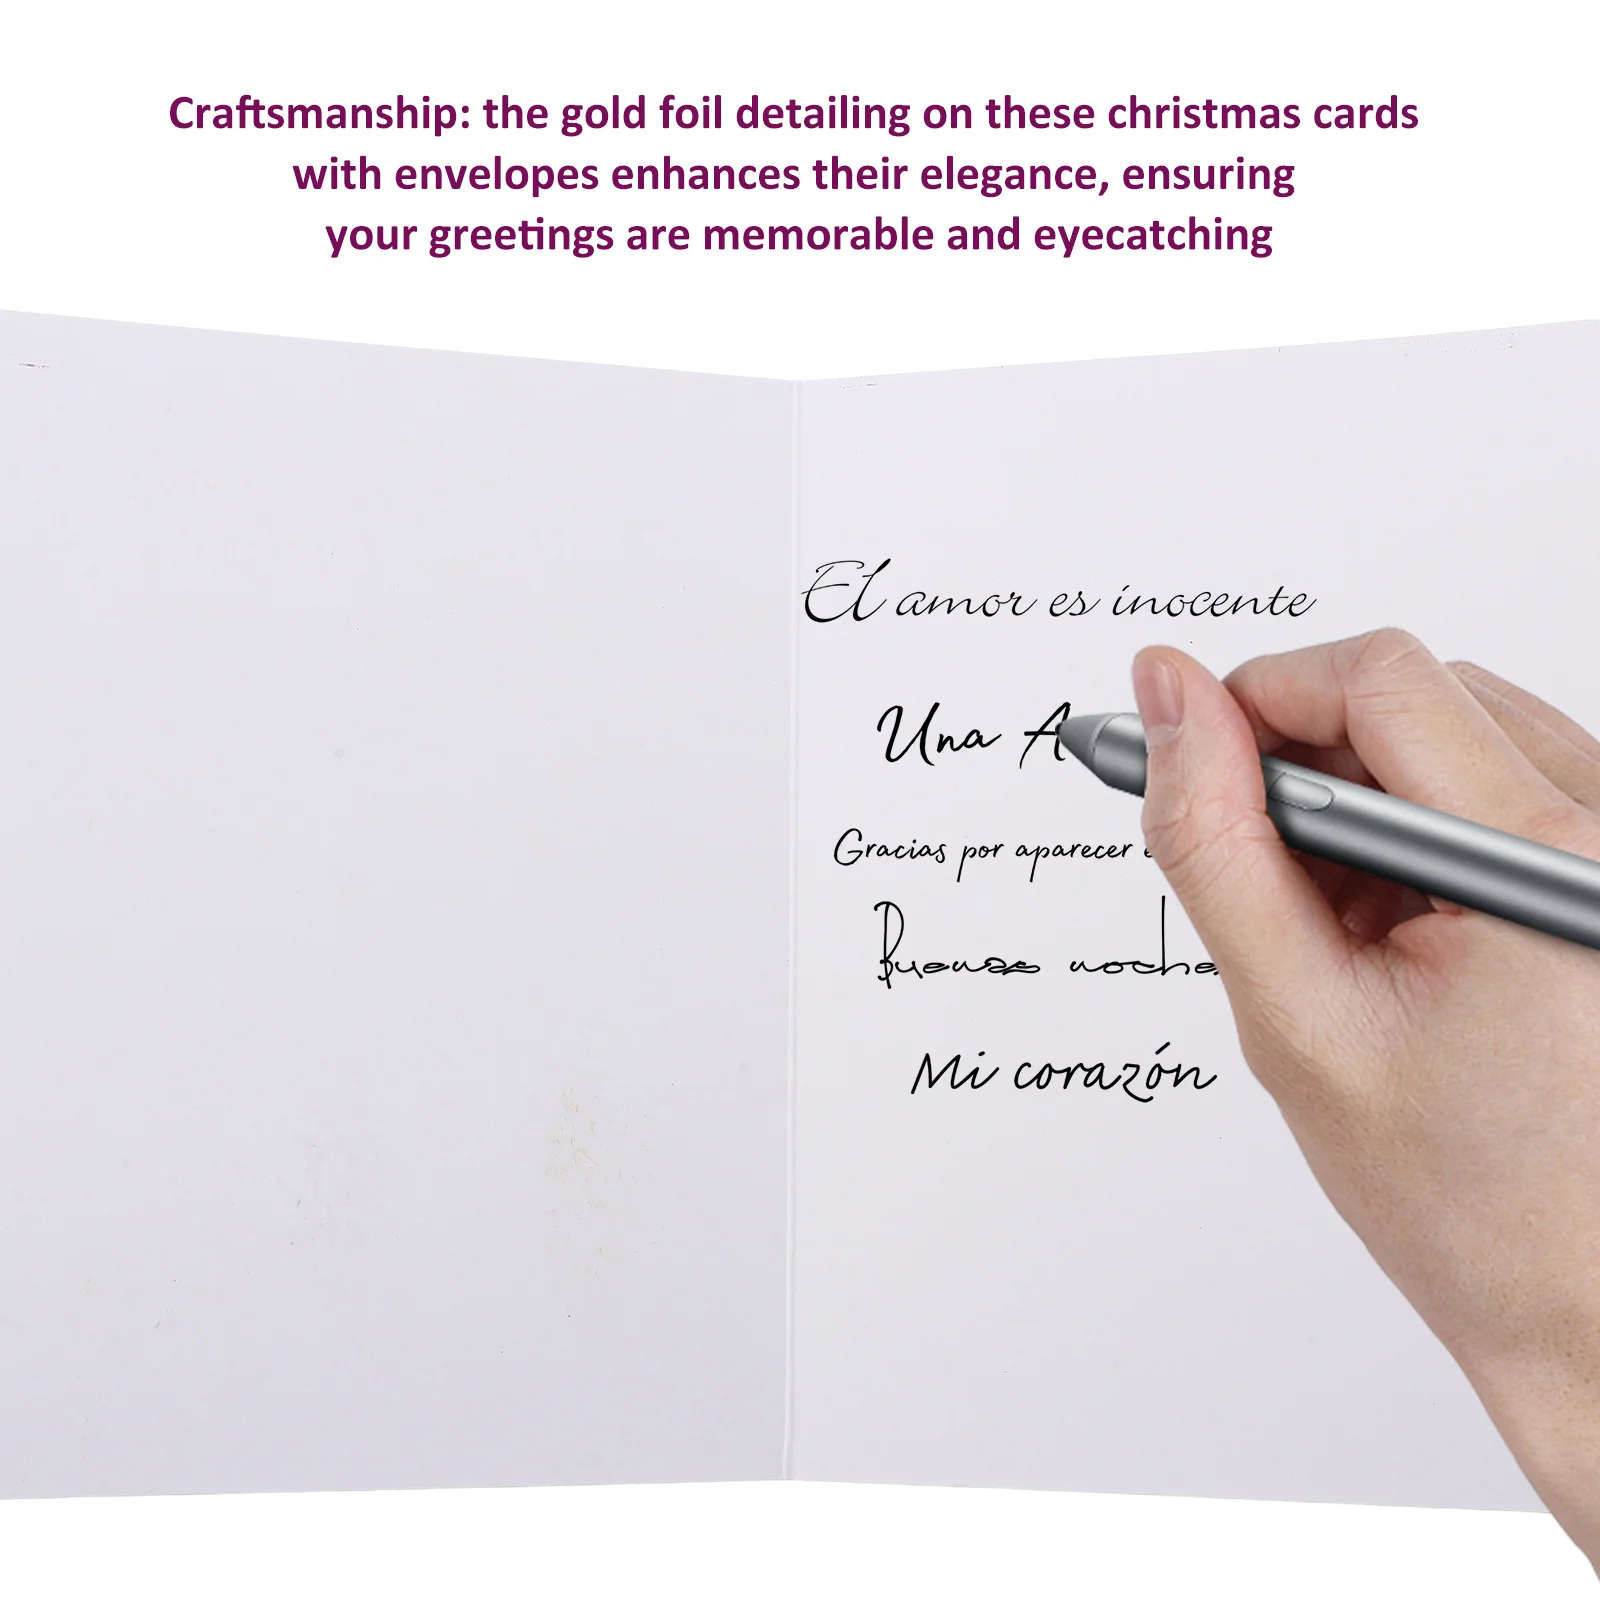 Craftsmanship: the gold foil detailing on these christmas cards
with envelopes enhances their elegance, ensuring
your greetings are memorable and eyecatching
El amor es inocente
Una A
Gracias por aparecer
Buenas noche
Mi corazón